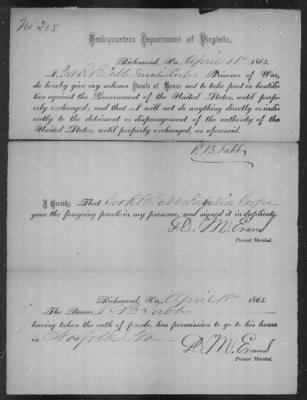 No 205
Headquarters Department of Virginia,
Richmond, Va., April 18th 1865.
I, R B Tabb Invalid Corps Prisoner of War,
do hereby give my solemn Parole of Honor not to take part in hostili-
ties against the Government of the United States, until prop-
erly exchanged; and that I will not do anything directly or indi-
rectly to the detriment or disparagement of the authority of the
United States, until properly exchanged, as aforesaid.
R. B. Tabb
I Certify, That R B Tabb Invalid Corps
gave the foregoing parole in my presence, and signed it in duplicate.
D. M. Evans
Provost Marshal.
Richmond, Va., April 18th 1865.
The Bearer, R B Tabb
having taken the oath of parole, has permission to go to his home
in Norfolk Va
D. M. Evans
Provost Marshal.